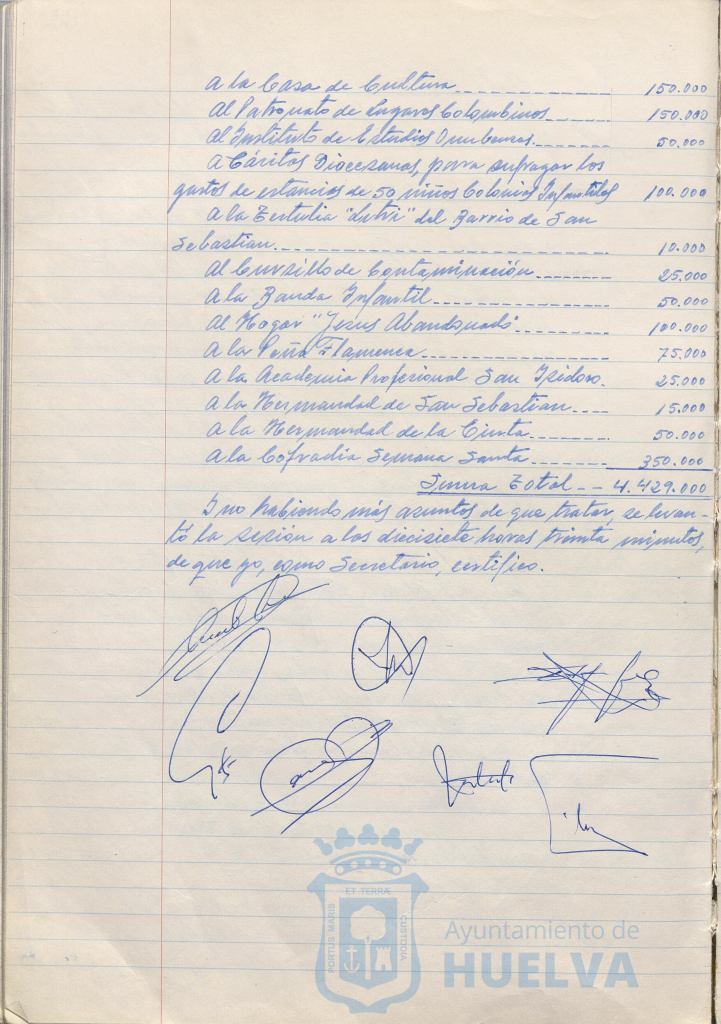 A la Casa de Cultura 150.000
Al Patronato de Lugares Colombinos 150.000
Al Instituto de Estudios Onubenses 50.000
A Cáritas Diocesanas, para sufragar los
gastos de estancias de 50 niños Colonias Infantiles 100.000
A la Tertulia " " del Barrio de San
Sebastian 10.000
Al Cursillo de Contaminación 25.000
A la Banda Infantil 50.000
Al Hogar "Jesus Abandonado" 100.000
A la Peña Flamenca 75.000
A la Academia Profesional San Isidoro 25.000
A la Hermandad de San Sebastian 15.000
A la Hermandad de la Cinta 50.000
A la Cofradia Semana Santa 350.000
Suma Total -- 4.429.000
Y no habiendo más asuntos de que tratar, se levan-
tó la sesión a las diecisiete horas treinta minutos,
de que yo, como Secretario, certifico.
ET TERRÆ
PORTUS MARIS
CUSTODIA
Ayuntamiento de
HUELVA